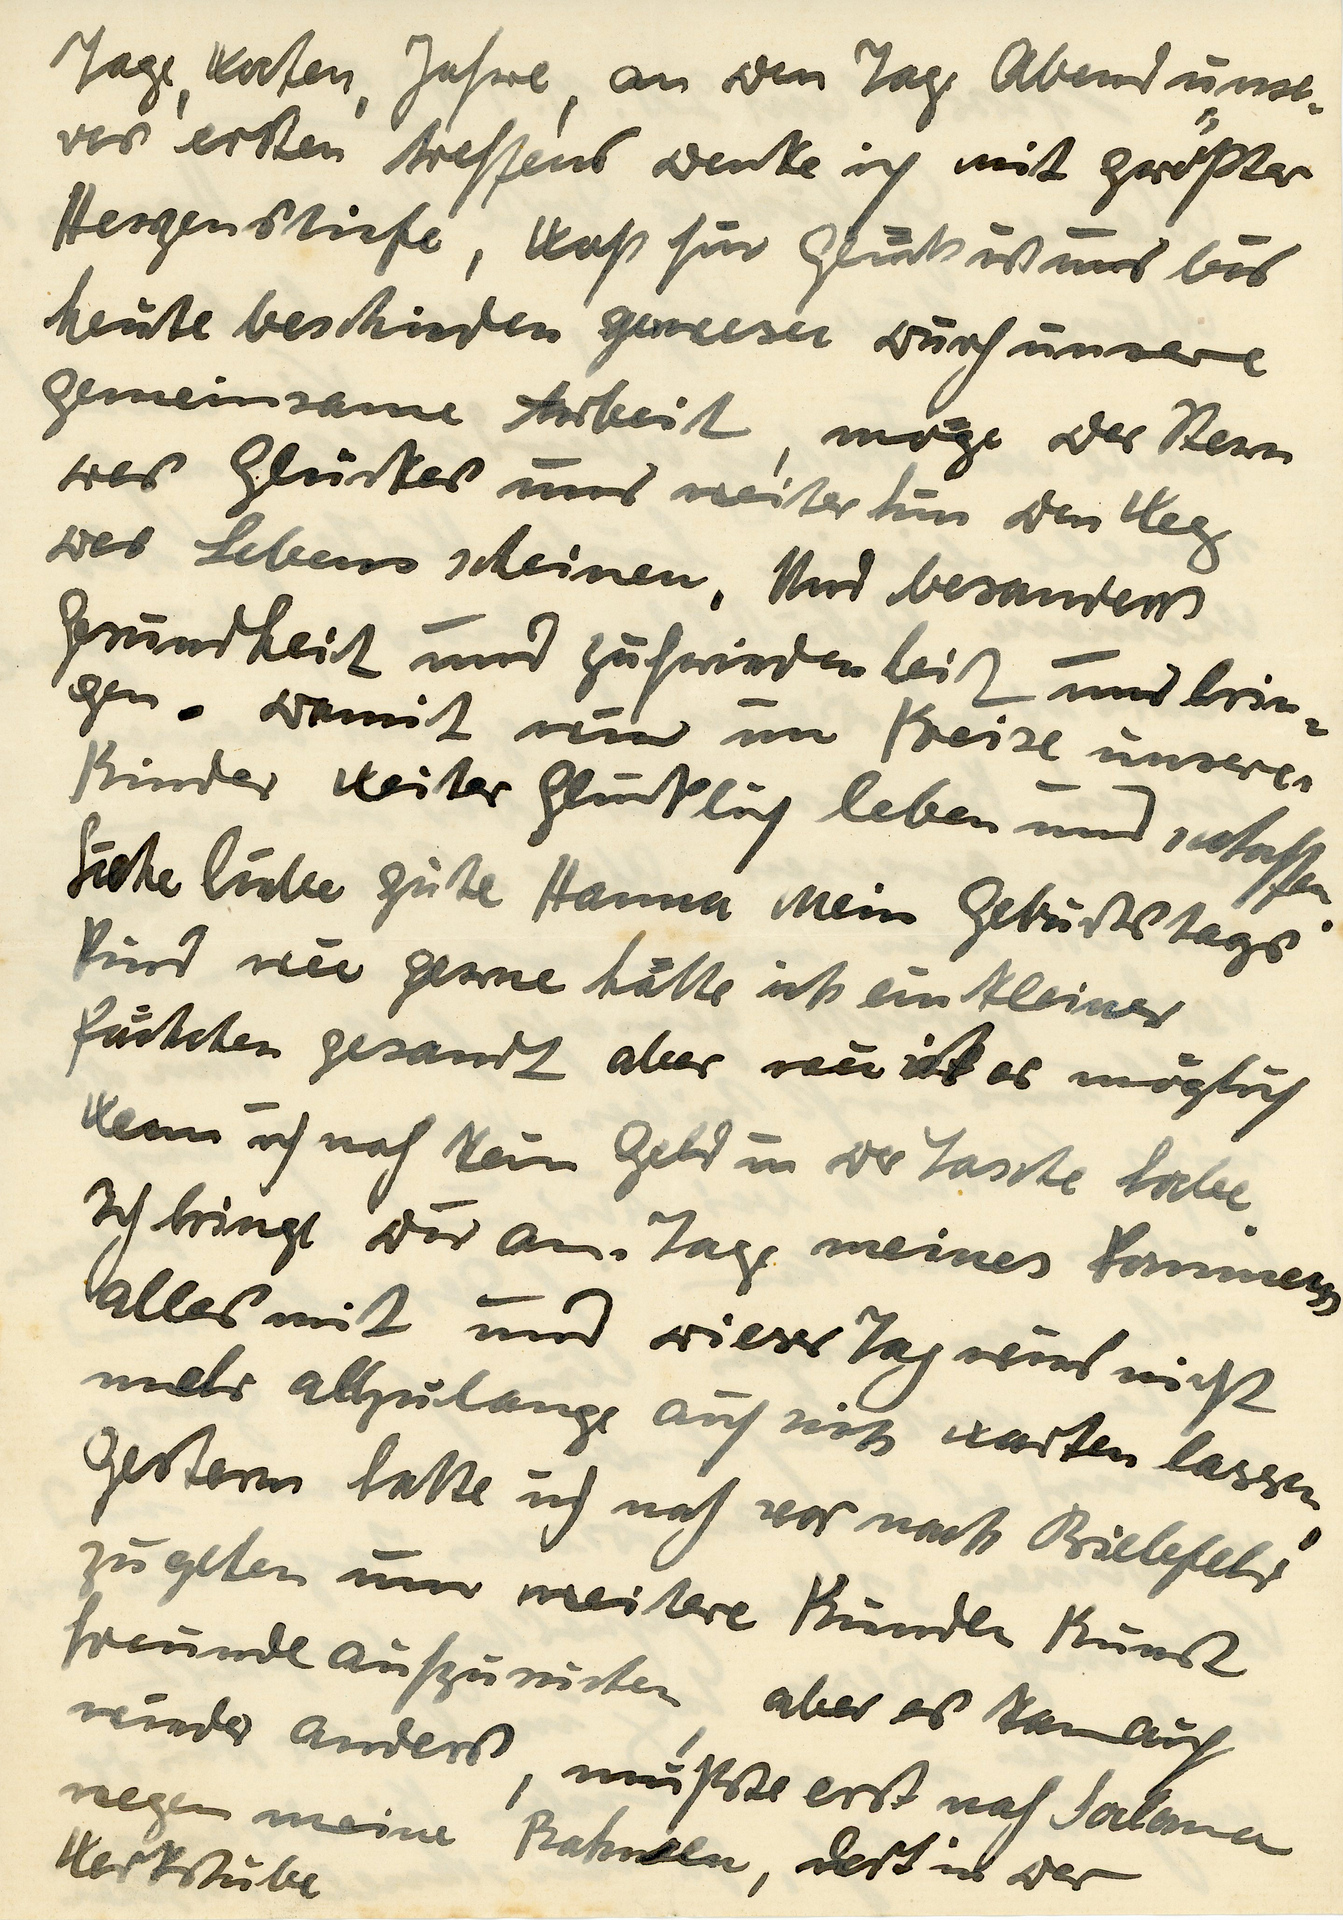 Tage, Wochen, Jahre, an den Tage Abend unse-
res ersten treffens denke ich mit größter
Herzenstiefe, Waß für Glück ist uns bis
heute beschieden gewesen durch unsere
gemeinsame Arbeit, möge der Stern
des Glückes uns weiterhin den Weg
des Lebens scheinen, Und besonders
Gesundheit und zufriedenheit uns brin-
gen. damit wir im Kreise unserer
Kinder weiter Glücklich leben und schaffen.
Siehe liebe gute Hanna Mein Geburtstags
Kind wie gerne hätte ich ein kleines
Päckchen gesandt aber wie ist es möglich
Wenn ich noch kein Geld in der Tasche habe.
Ich bringe dir am Tage meines Kommens
alles mit und dieser Tag wird nicht
mehr allzulange auf sich warten lassen.
Gestern hatte ich noch vor nach Bielefeld
zugehen um weitere Kunden Kunst
freunde aufzusuchen, aber es kam auch
wieder anders, mußste erst nach
wegen meine Rahmen, dort in der
Werkstube